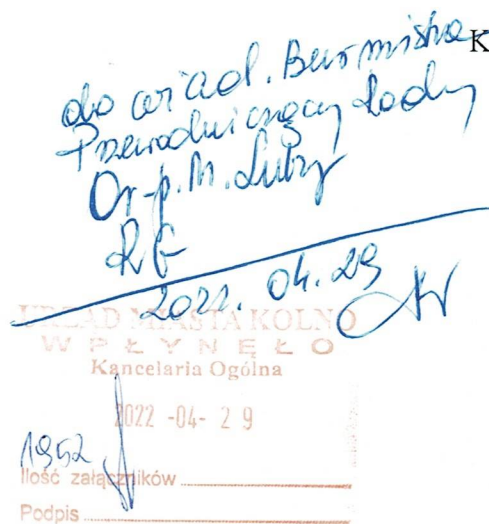 K
do wiad. Burmistrza
Przewodniczący Rady
Or-p. M. Lutrzy
RG
2022. 04. 29
URZĄD MIASTA KOLNO
WPŁYNĘŁO
Kancelaria Ogólna
2022 -04- 29
1952
Ilość załączników
Podpis